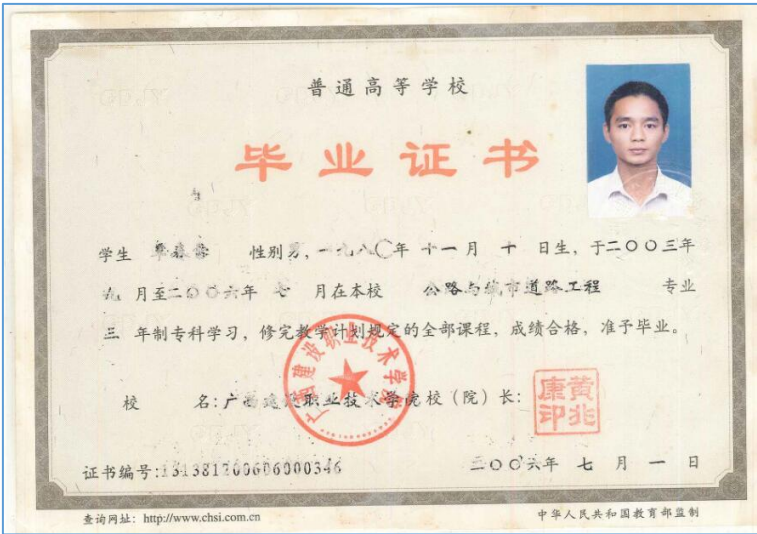 普通高等学校
毕业证书
学生 性别男,一九八〇年 十一月 十 日生,于二〇〇三年
九 月至二〇〇六年 七 月在本校 公路与城市道路工程 专业
三 年制专科学习,修完教学计划规定的全部课程,成绩合格,准予毕业。
广西建设职业技术学院
校 名:广西建设职业技术学院校(院)长:
黄北康印
证书编号:131381200606000346
二〇〇六年 七 月 一 日
查询网址:http://www.chsi.com.cn
中华人民共和国教育部监制